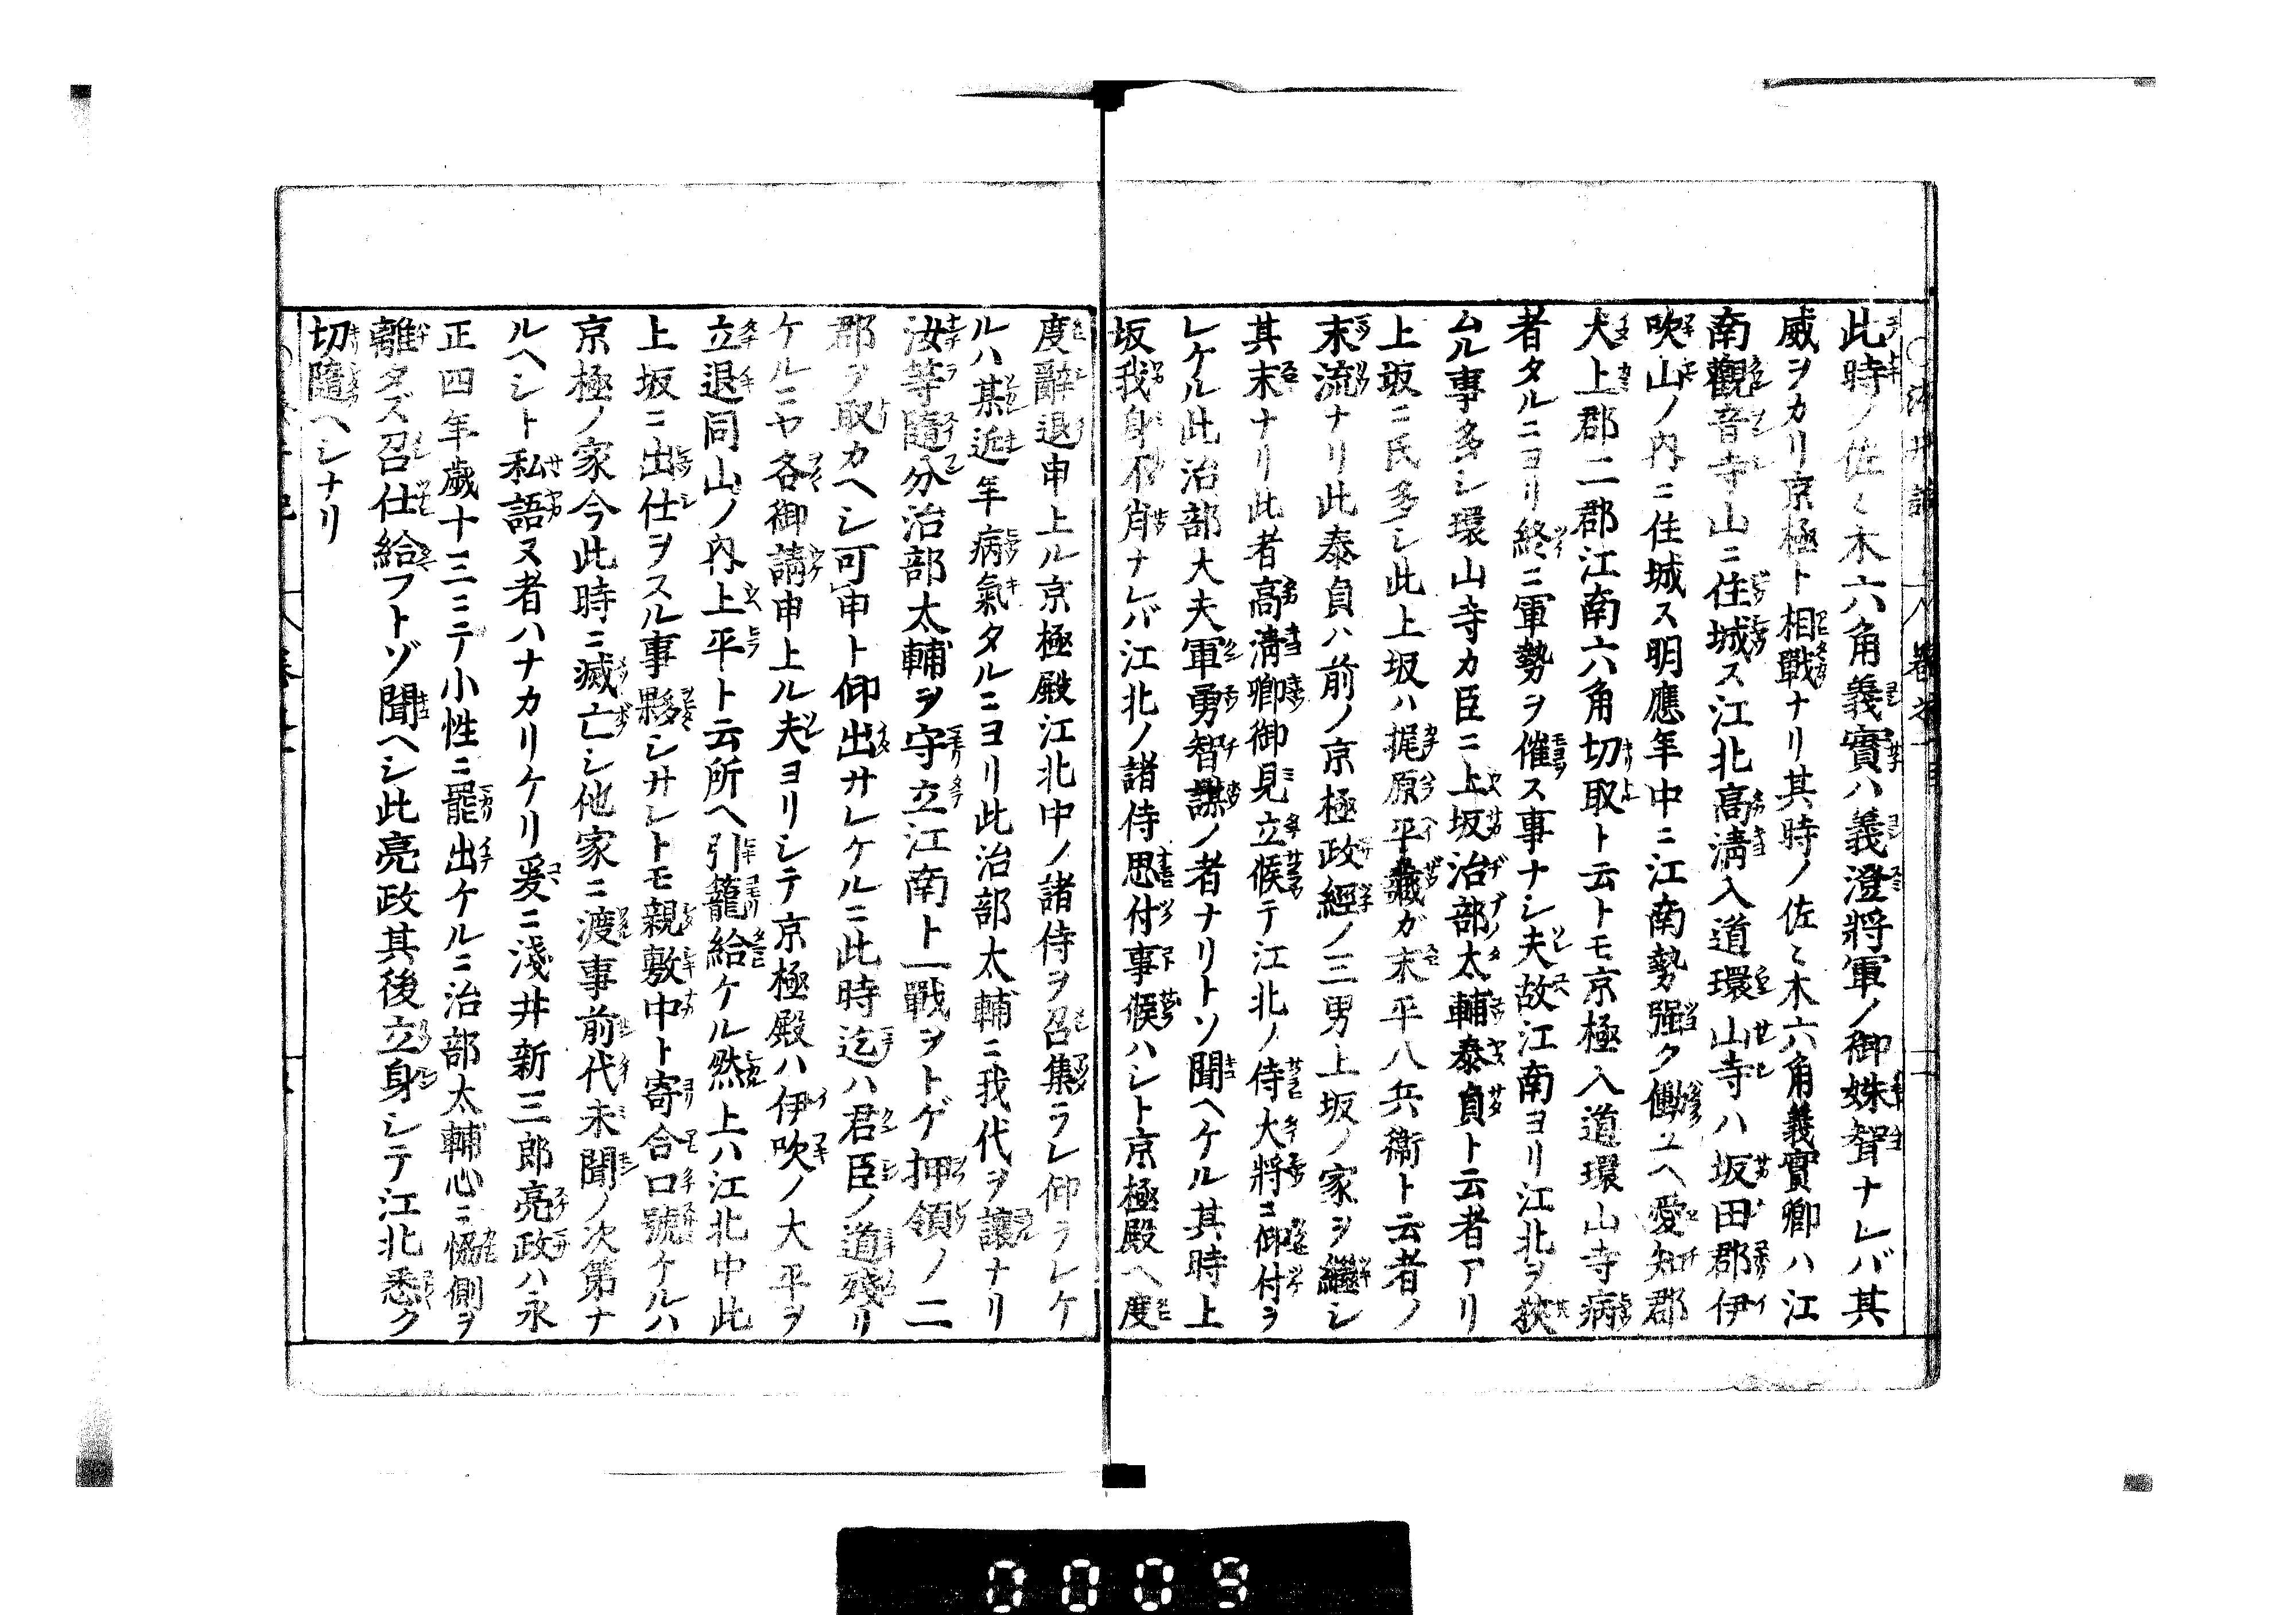 此時ノ佐々木六角義實ハ義澄將軍ノ御姝聟ナレバ其
威ヲカリ京極ト相戰ナリ其時ノ佐々木六角義實卿ハ江
南觀音寺山ニ住城ス江北高淸入道環山寺ハ坂田郡伊
吹山ノ内ニ住城ス明應年中ニ江南勢強ク働ユヘ愛知郡
犬上郡二郡江南六角切取ト云トモ京極入道環山寺病
者タルニヨリ終ニ軍勢ヲ催ス事ナシ夫故江南ヨリ江北ヲ掠
ムル事多シ環山寺カ臣ニ上坂治部太輔泰貞ト云者アリ
上坂ニ氏多シ此上坂ハ梶原平藏ガ末平八兵衞ト云者ノ
末流ナリ此泰貞ハ前ノ京極政經ノ三男上坂ノ家ヲ繼シ
其末ナリ此者高淸卿御見立候テ江北ノ侍大將ニ仰付ラ
レケル此治部大夫軍勇智謀ノ者ナリトソ聞ヘケル其時上
坂我身不肖ナレバ江北ノ諸侍思付事候ハシト京極殿ヘ度
度辭退申上ル京極殿江北中ノ諸侍ヲ召集ラレ仰ラレケ
ルハ某近年病氣タルニヨリ此治部太輔ニ我代ヲ讓ナリ
汝等隨分治部太輔ヲ守立江南ト一戰ヲトゲ押領ノ二
郡ヲ取カヘシ可申ト仰出サレケルニ此時迄ハ君臣ノ道殘リ
ケルニヤ各御請申上ル夫ヨリシテ京極殿ハ伊吹ノ大平ヲ
立退同山ノ内上平ト云所ヘ引籠給ケル然上ハ江北中此
上坂ニ出仕ヲスル事夥シサレトモ親敷中ト寄合口號ケルハ
京極ノ家今此時ニ滅亡シ他家ニ渡事前代未聞ノ次第ナ
ルヘシト私語ヌ者ハナカリケリ爰ニ淺井新三郎亮政ハ永
正四年歲十三ニテ小性ニ罷出ケルニ治部太輔心ニ恊側ヲ
離タズ召仕給フトゾ聞ヘシ此亮政其後立身シテ江北悉ク
切隨ヘシナリ